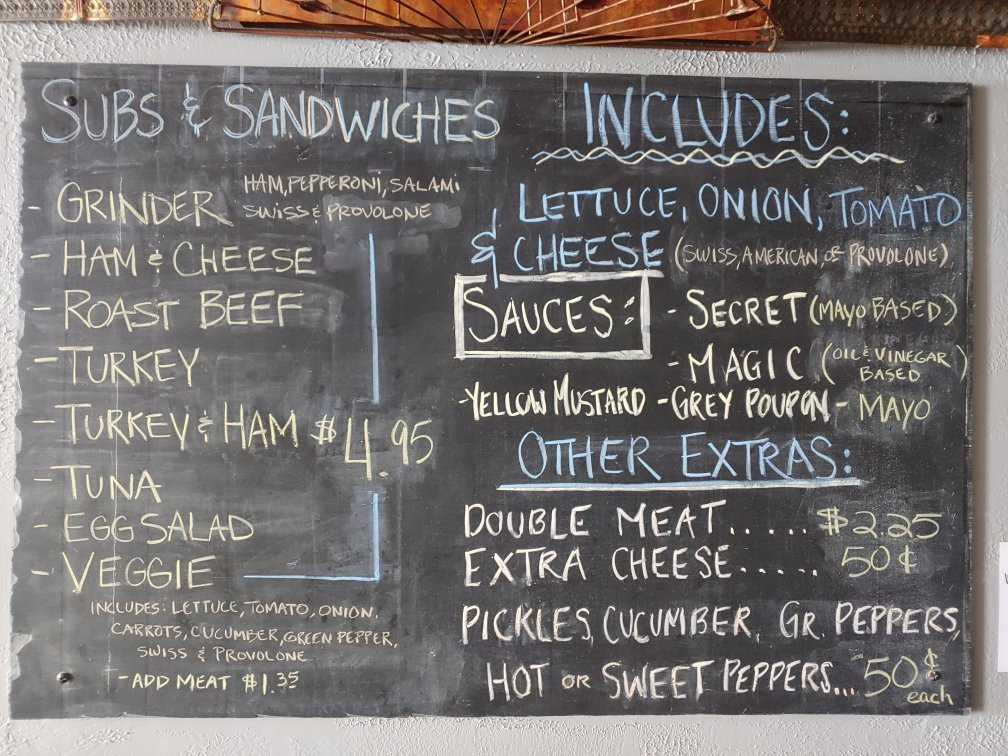 SUBS & SANDWICHES
- GRINDER HAM, PEPPERONI, SALAMI
SWISS & PROVOLONE
- HAM & CHEESE
- ROAST BEEF
- TURKEY
- TURKEY & HAM $4.95
- TUNA
- EGG SALAD
- VEGGIE
INCLUDES: LETTUCE, TOMATO, ONION,
CARROTS, CUCUMBER, GREEN PEPPER,
SWISS & PROVOLONE
- ADD MEAT $1.35
INCLUDES:
LETTUCE, ONION, TOMATO
& CHEESE (SWISS, AMERICAN, OR PROVOLONE)
SAUCES: - SECRET (MAYO BASED)
- MAGIC (OIL & VINEGAR
BASED
- YELLOW MUSTARD - GREY POUPON - MAYO
OTHER EXTRAS:
DOUBLE MEAT..... $2.25
EXTRA CHEESE..... 50¢
PICKLES, CUCUMBER, GR. PEPPERS,
HOT OR SWEET PEPPERS... 50¢
each